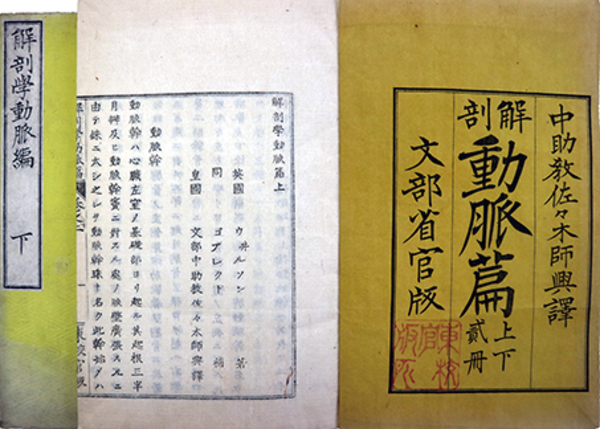 中助教佐々木師興譯
解剖動脈篇上下貳冊
文部省官版
解剖學動脈篇上
英國 ウヰルソン 著
同 ゴアレクト 補
皇國 文部中助教佐々木師興譯
動脈幹
動脈幹ハ心臓左室ノ基礎部ヨリ起ル其起根三字
月様及ヒ動脈幹竇ニ對スル處ノ脈壁廣張スルニ
由テ殊ニ太シ之レヲ動脈幹球ト名ク此幹始メハ
解剖學動脈編 下